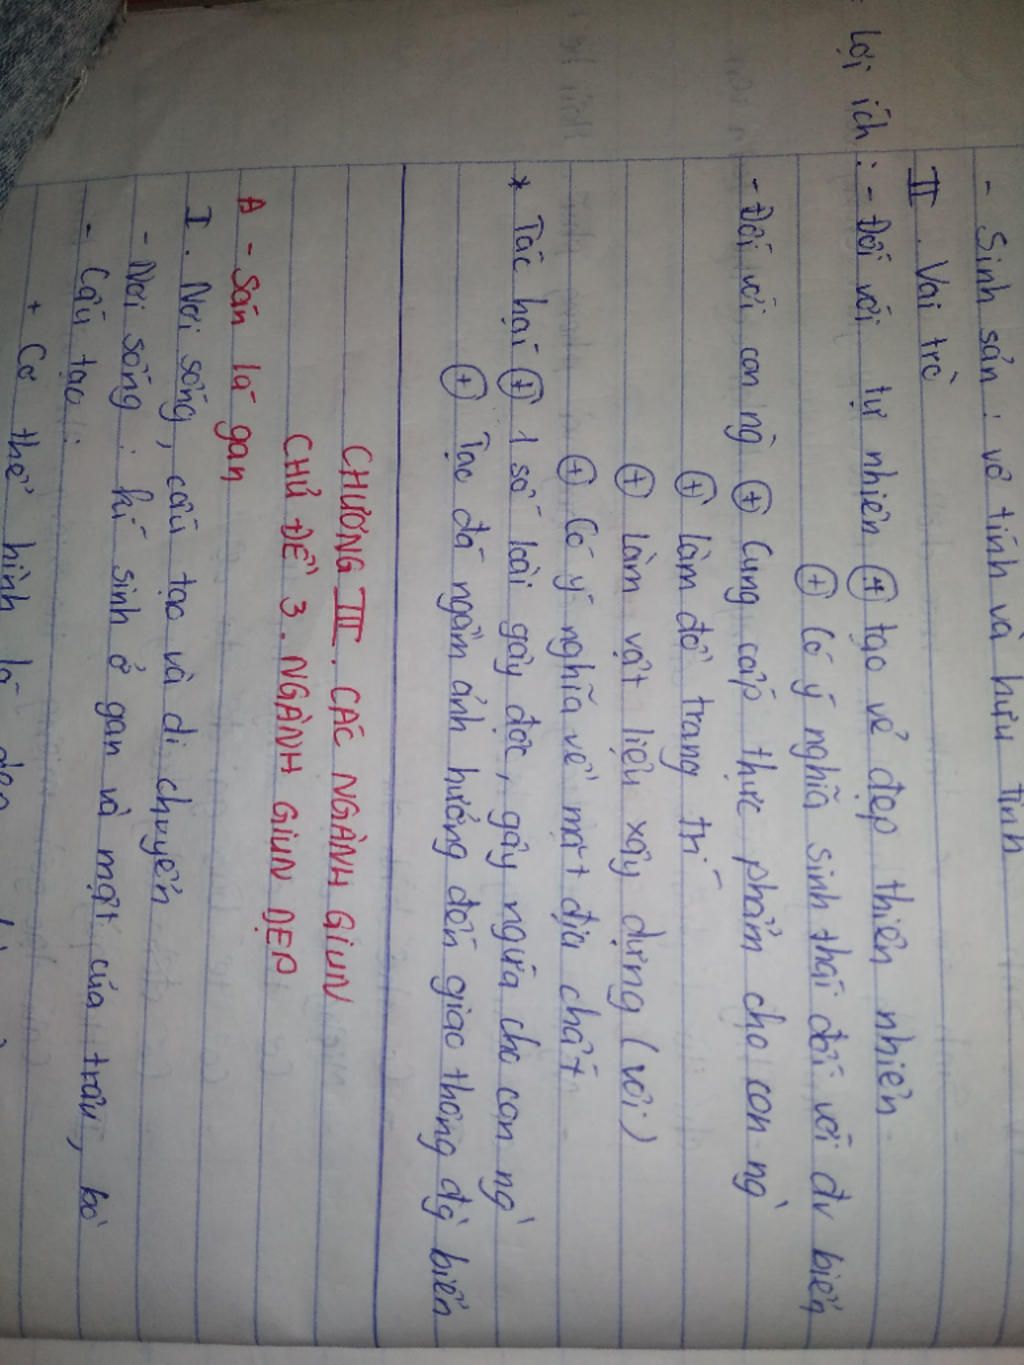 - Sinh sản : vô tính và hữu tính
II. Vai trò
lợi ích : - Đối với tự nhiên (+) tạo vẻ đẹp thiên nhiên
(+) Có ý nghĩa sinh thái đối với đv biển
- Đối với con ng̀ (+) Cung cấp thực phẩm cho con ng̀
(+) làm đồ trang trí
(+) làm vật liệu xây dựng (vôi)
(+) Có ý nghĩa về mặt địa chất
* Tác hại (+) 1 số loài gây độc, gây ngứa cho con ng̀
(+) Tạo đá ngầm ảnh hưởng đến giao thông đg̀ biển
CHƯƠNG III. CÁC NGÀNH GIUN
CHỦ ĐỀ 3. NGÀNH GIUN DẸP
A - Sán lá gan
I. Nơi sống, cấu tạo và di chuyển
- Nơi sống : kí sinh ở gan và mật của trâu, bò
- Cấu tạo :
+ Cơ thể hình lá